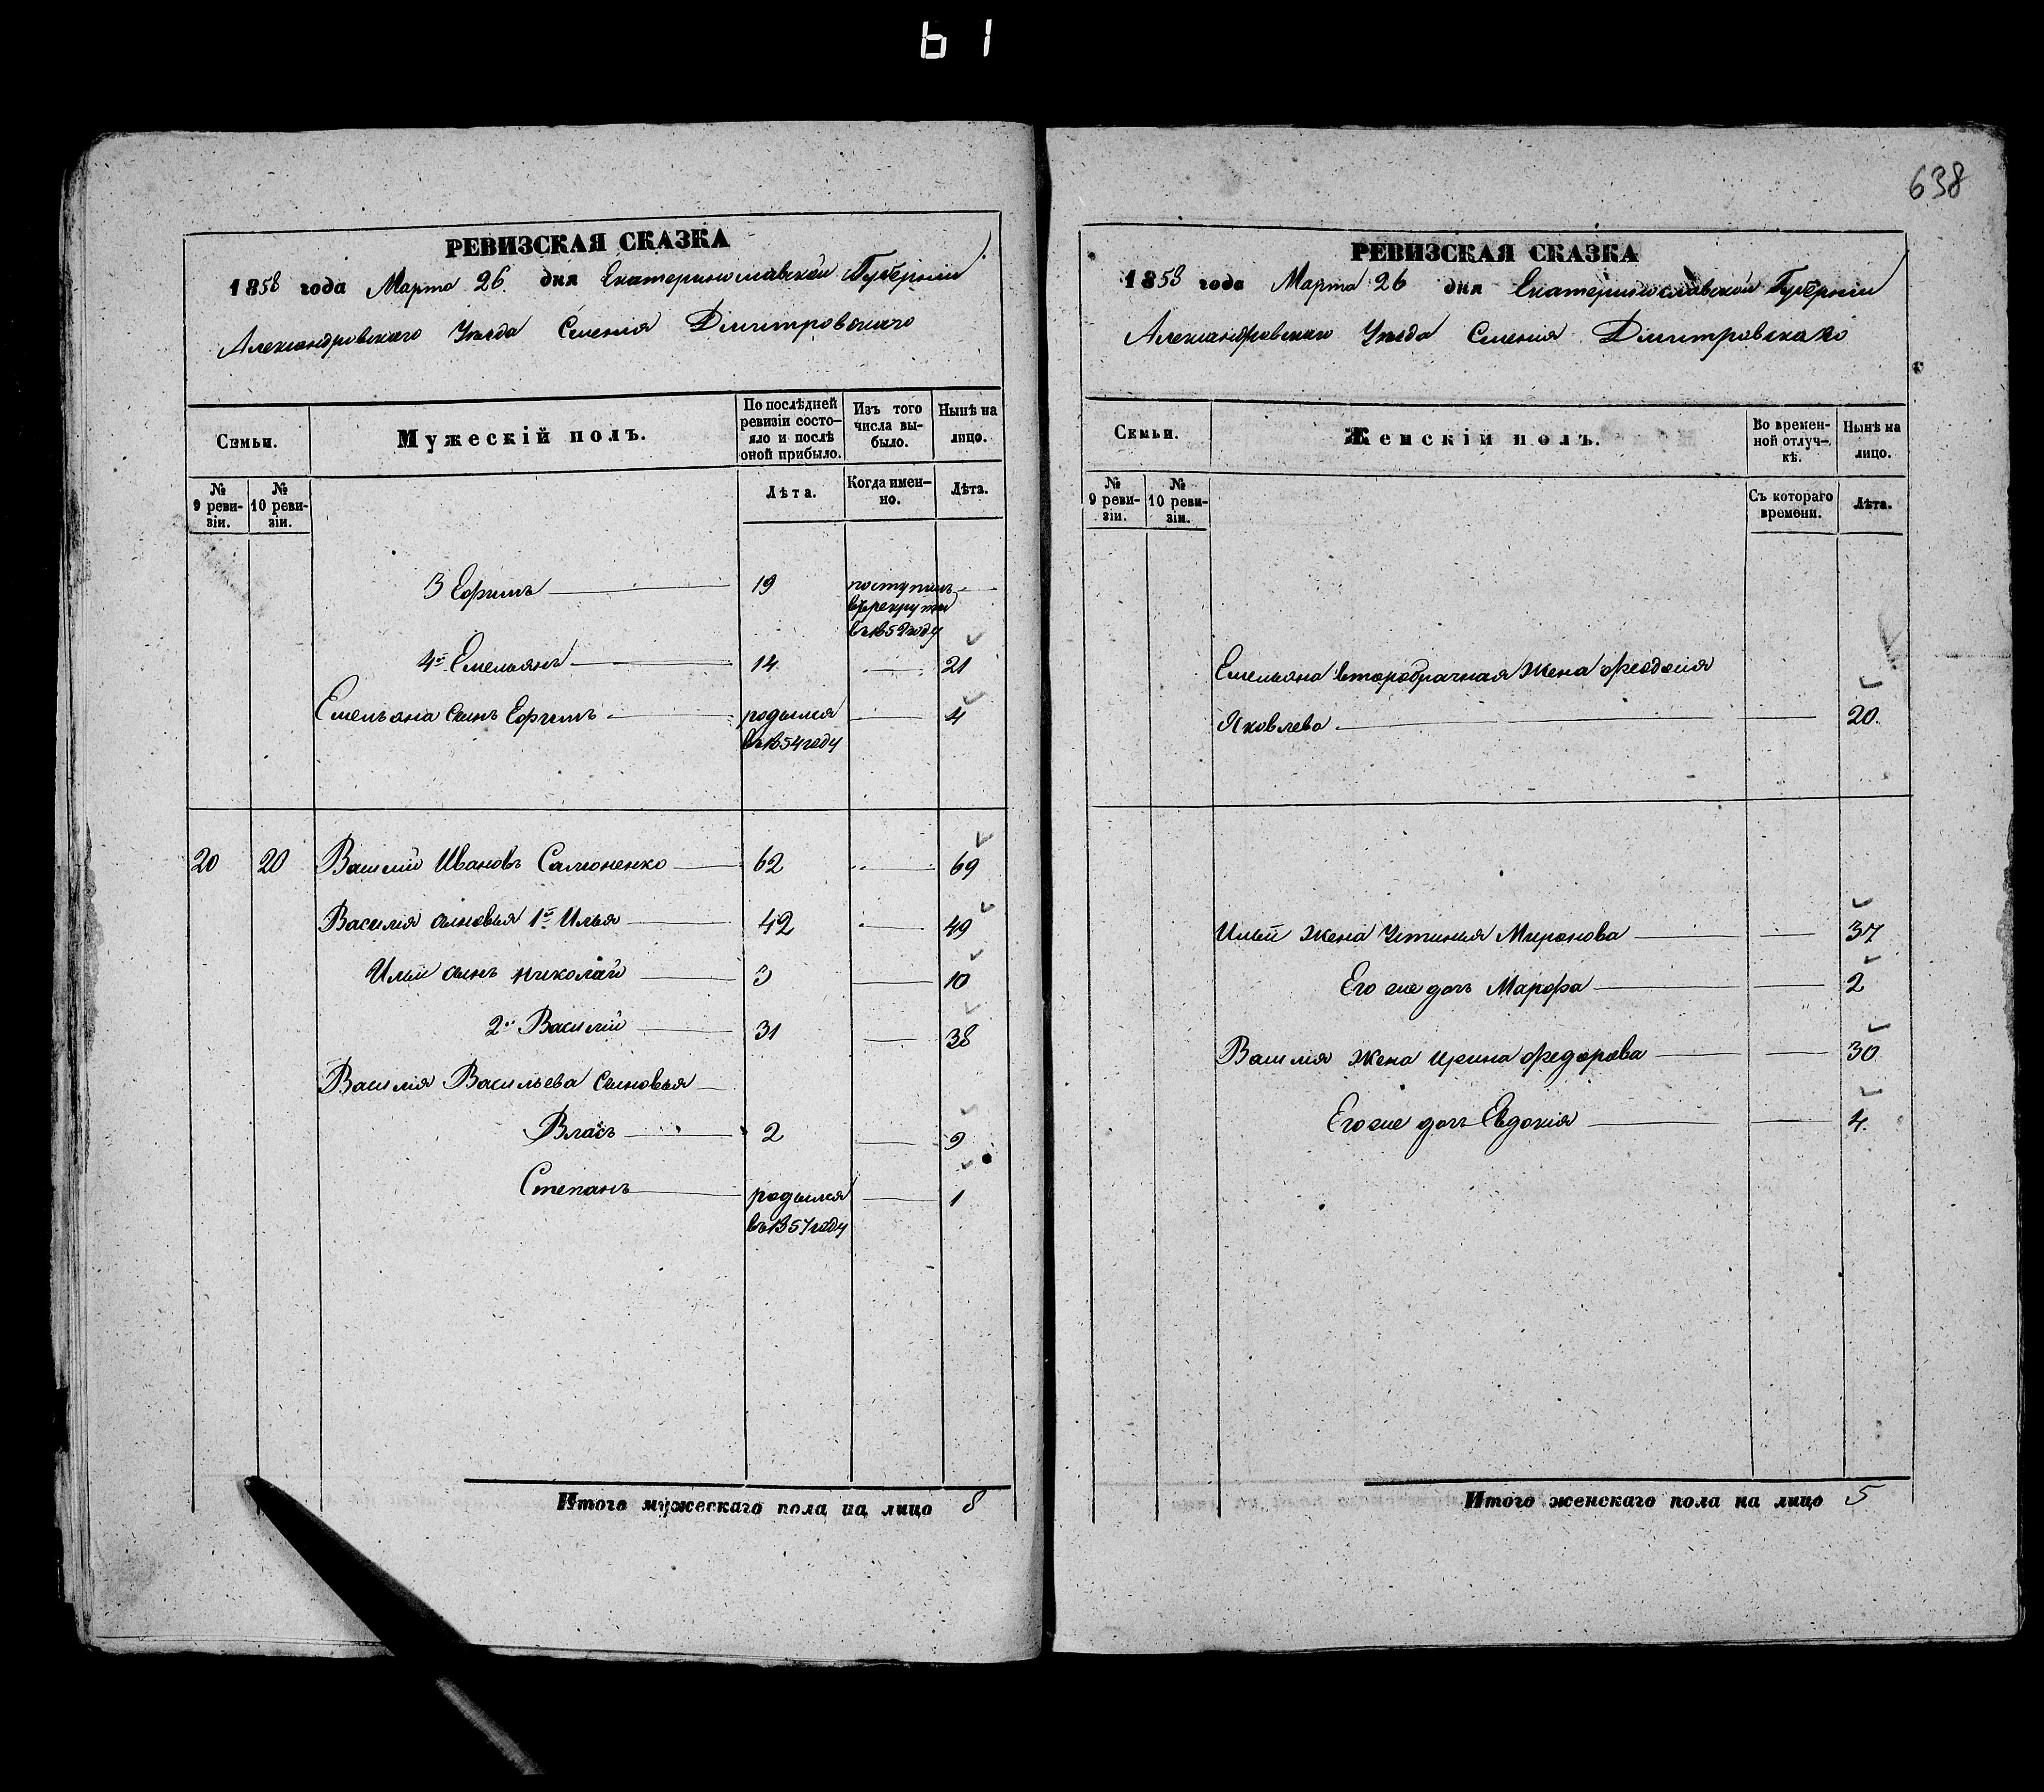 61
638
РЕВИЗСКАЯ СКАЗКА
1858 года Марта 26. дня Екатеринославской Губерніи
Александровскаго Уѣзда Селенія Дмитровскаго
Семьи.
Мужескій полъ.
По послѣдней ревизіи состо-
яло и послѣ
оной прибыло.
Изъ того
числа вы-
было.
Нынѣ на
лицо.
№
9 реви-
зіи.
№
10 реви-
зіи.
Лѣта.
Когда имен-
но.
Лѣта.
3 Ефимъ 19 поступилъ
въ рекруты
въ 1852 году
4й Емельянъ 14 21
Емельяна сынъ Ефимъ родился 4
въ 1854 году
20 20 Василій Ивановъ 62 69
Василія сыновья 1й Илья 42 49
Ильи сынъ Николай 3 10
2й Василій 31 38
Василія Васильева сыновья
Власъ 2 9
Степанъ родился 1
въ 1857 году
Итого мужескаго пола на лицо 8
РЕВИЗСКАЯ СКАЗКА
1858 года Марта 26 дня Екатеринославской Губерніи
Александровскаго Уѣзда Селенія Дмитровскаго
Семьи.
Женскій полъ.
Во времен-
ной отлуч-
кѣ.
Нынѣ на
лицо.
№
9 реви-
зіи.
№
10 реви-
зіи.
Съ котораго
времени.
Лѣта.
Емельяна второбрачная жена Феодосія
Яковлева 20.
Ильи жена Устинья Миронова 37
Его же дочь Марфа 2
Василія жена Ирина Федорова 30
Его же дочь Евдокія 4.
Итого женскаго пола на лицо 5